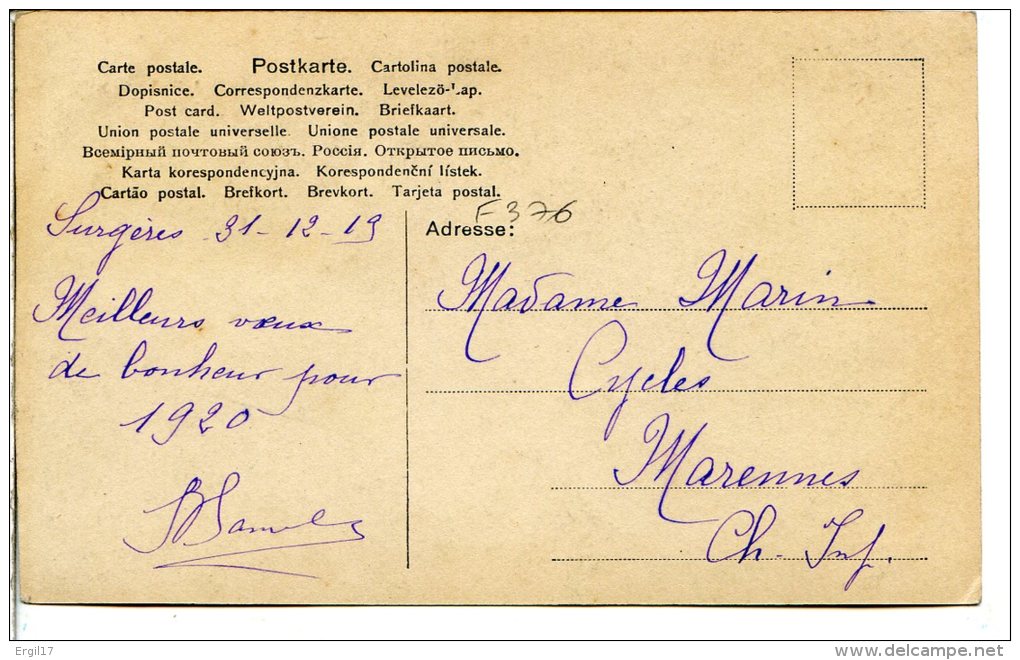 Carte postale. Postkarte. Cartolina postale.
Dopisnice. Correspondenzkarte. Levelezö-Lap.
Post card. Weltpostverein. Briefkaart.
Union postale universelle. Unione postale universale.
Всемірный почтовый союзъ. Россія. Открытое письмо.
Karta korespondencyjna. Korespondenční lístek.
Cartão postal. Brefkort. Brevkort. Tarjeta postal.
Surgères 31-12-19
Meilleurs vœux
de bonheur pour
1920
F376
Adresse:
Madame Marin
Cycles
Marennes
Ch. Inf.
Ergil17
www.delcampe.net